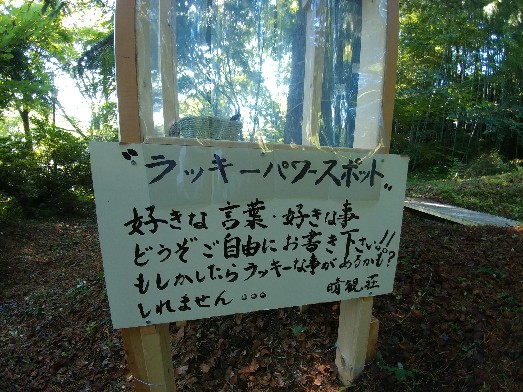 "ラッキーパワースポット"
好きな言葉・好きな事
どうぞご自由にお書き下さい!!
もしかしたらラッキーな事があるかも?
しれません... 晴観荘